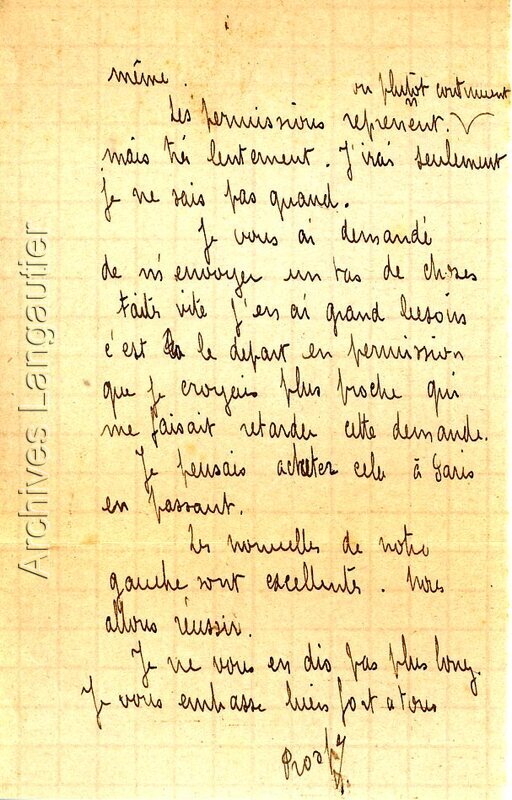 même.
ou plutôt continuent
Les permissions reprennent.
mais très lentement. J'irai seulement
je ne sais pas quand.
Je vous ai demandé
de m'envoyer un tas de choses
faites vite j'en ai grand besoin
c'est le départ en permission
que je croyais plus proche qui
me faisait retarder cette demande.
Je pensais acheter cela à Paris
en passant.
Les nouvelles de notre
gauche sont excellentes. Nous
allons réussir.
Je ne vous en dis pas plus long.
Je vous embrasse bien fort a tous
Archives Langautier